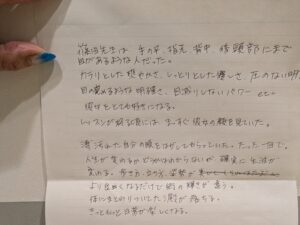 篠田先生は 手の平、指先、背中、後頭部にまで
目があるような人だった。
カラリとした爽やかさ、しっとりとした優しさ、圧のない
目の覚めるような明確さ、目減りしないパワー etc
彼女をとても好きになる。
レッスンが終る頃には まっすぐ彼女の顔を見ていた。
凄 自分の眼を はがしてもらっていた。たった一日で。
人生が変わるかどうかはわからないが 確実に 生活が
変わる。歩き方、立ち方、姿勢が
より良くなるだけで 街の輝きが違う。
ほとりついてた が落ちる。
きっともっと日常が楽しくなる。